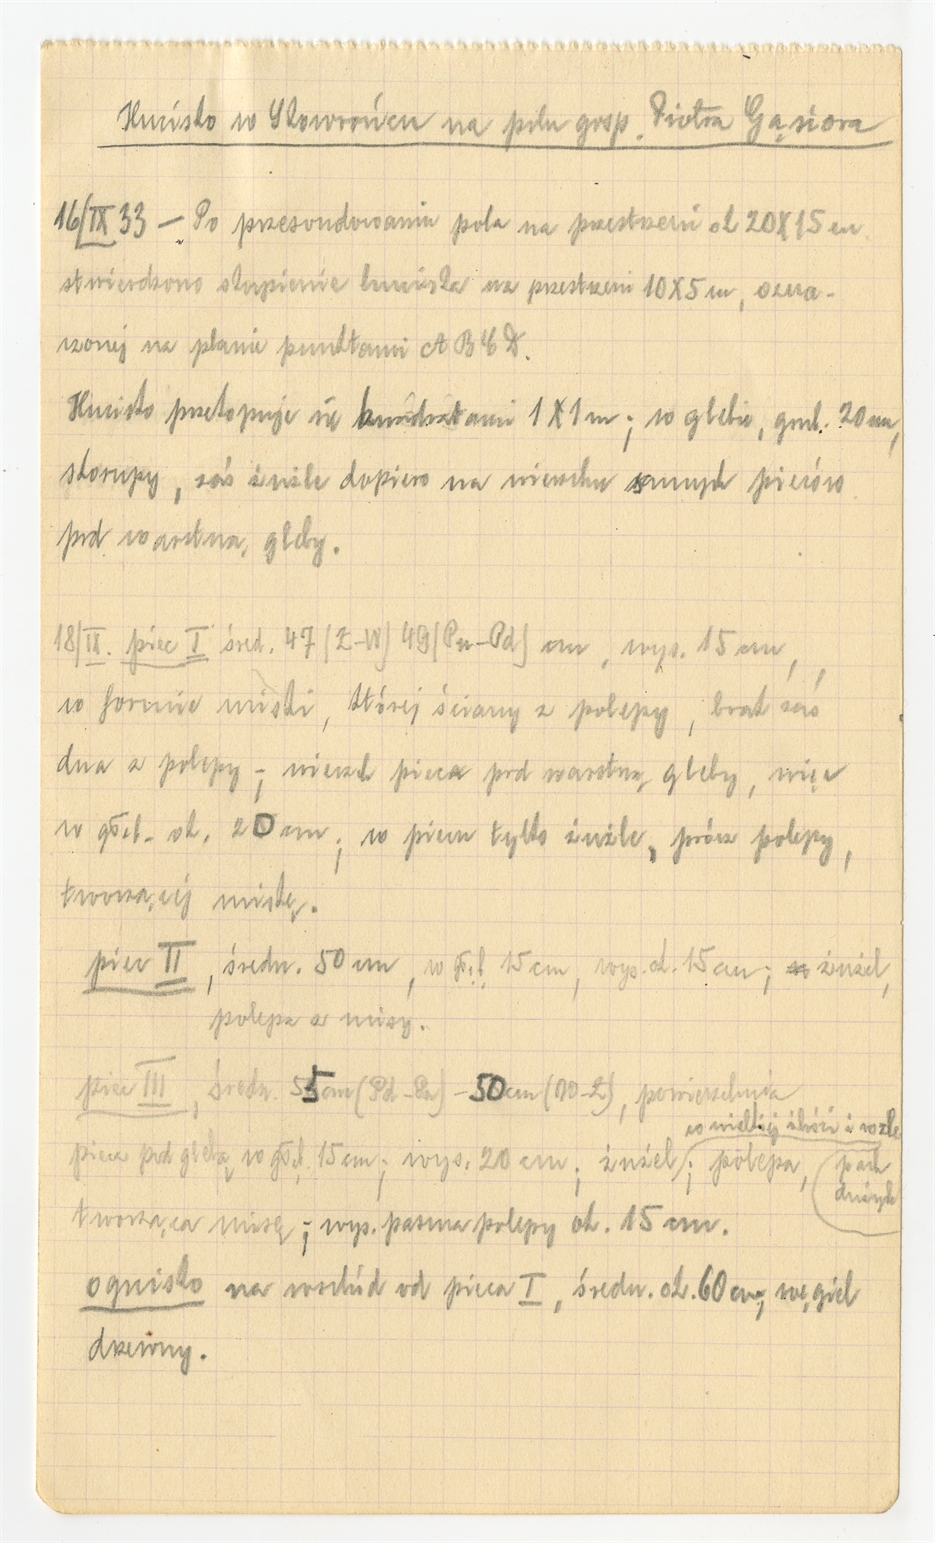 Hucisko w Skowrońcu na polu gosp. Piotra Gąsiora
16/IX 33 — Po przesondowaniu pola na przestrzeni ok 20X15 m
stwierdzono skupienie huciska na przestrzeni 10X5 m,
czonej na planie punktami A B C D.
Hucisko przekopuje się kwadratami 1X1 m; w glebie, grub. 20 cm,
skorupy, zaś żużle dopiero na wierzchu samych pieców
pod warstwą gleby.
18/IX. piec I śred. 47 [Z-W] 49 [Pn-Pd] cm, wys. 15 cm,
w formie miski, której ściany z polepy, brak zaś
dna z polepy; wierzch pieca pod warstwą gleby, więc
w głęb. ok. 20 cm; w piecu tylko żużle, prócz polepy,
tworzącej miskę.
piec II, średn. 50 cm, w głęb. 15 cm, wys. ok. 15 cm; żużel,
polepa z misy.
piec III, średn. 55 cm (Pd-Pn) - 50 cm (W-Z), powierzchnia
w wielkiej ilości i w
pieca pod glebą w głęb. 15 cm; wys. 20 cm; żużel; polepa,
dużych
tworząca misę; wys. pasma polepy ok. 15 cm.
ognisko na wschód od pieca I, średn. ok. 60 cm, węgiel
drzewny.